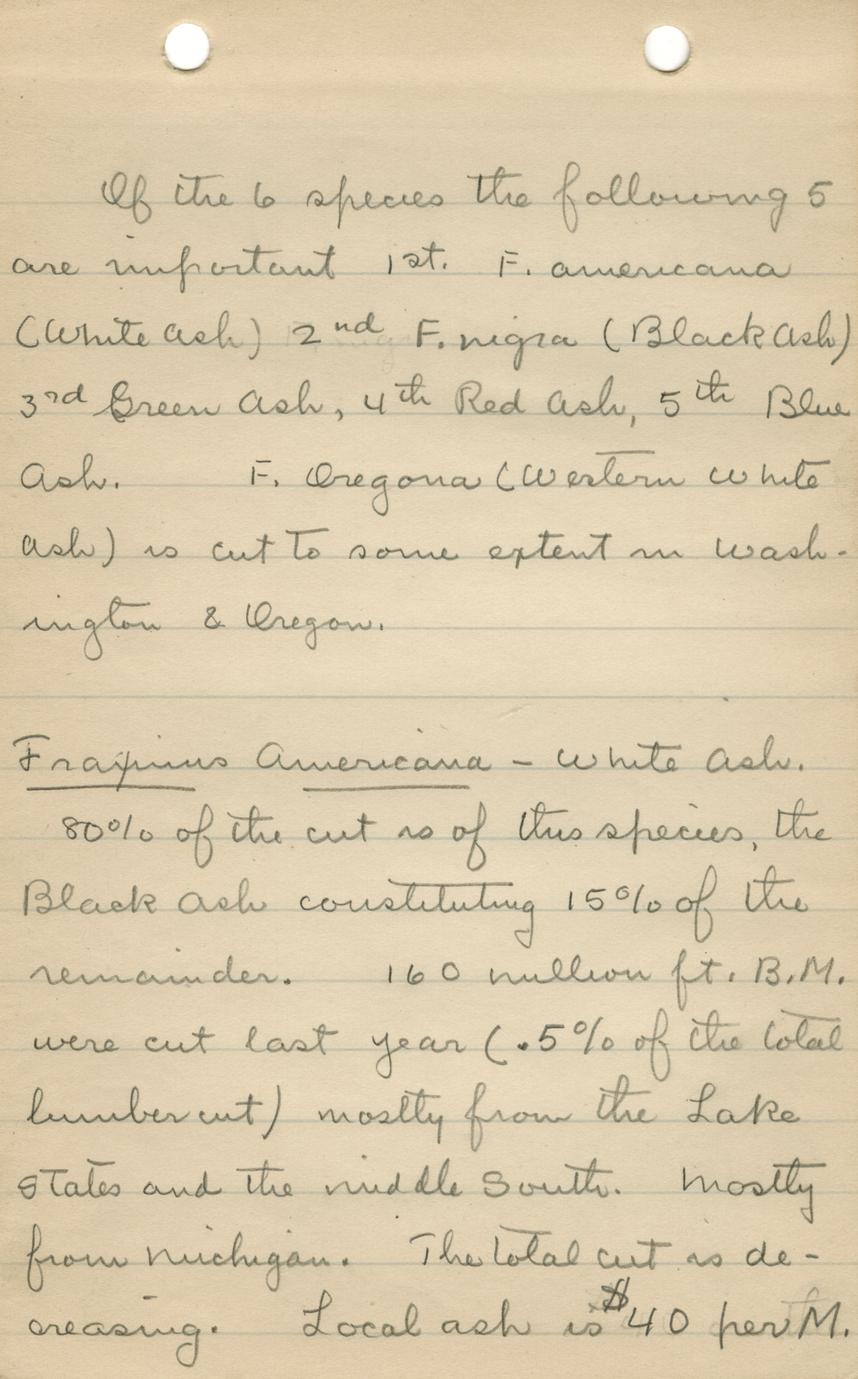 Of the 6 species the following 5
are important 1st. F. americana
(White Ash) 2nd F. nigra (Black Ash)
3rd Green Ash, 4th Red Ash, 5th Blue
Ash. F. Oregona (Western White
Ash) is cut to some extent in Wash-
ington & Oregon.
Fraxinus Americana - White Ash.
80% of the cut is of this species, the
Black Ash constituting 15% of the
remainder. 160 million ft. B.M.
were cut last year (.5% of the total
lumber cut) mostly from the Lake
States and the middle South. Mostly
from Michigan. The total cut is de-
creasing. Local ash is $40 per M.